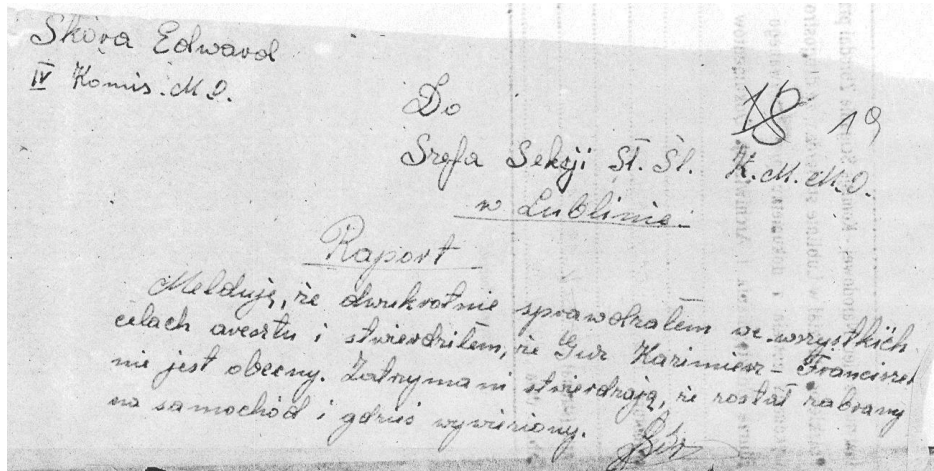 Skóra Edward
IV Komis. M.O.
Do
18 19
Szefa Sekcji Sł. Śl. K.M.M.O.
w Lublinie.
Raport
Melduję, że dwukrotnie sprawdzałem we wszystkich
celach aresztu i stwierdziłem, że Gur Kazimierz Franciszek
nie jest obecny. Zatrzymani stwierdzają, że został zabrany
na samochód i gdzieś wywieziony.